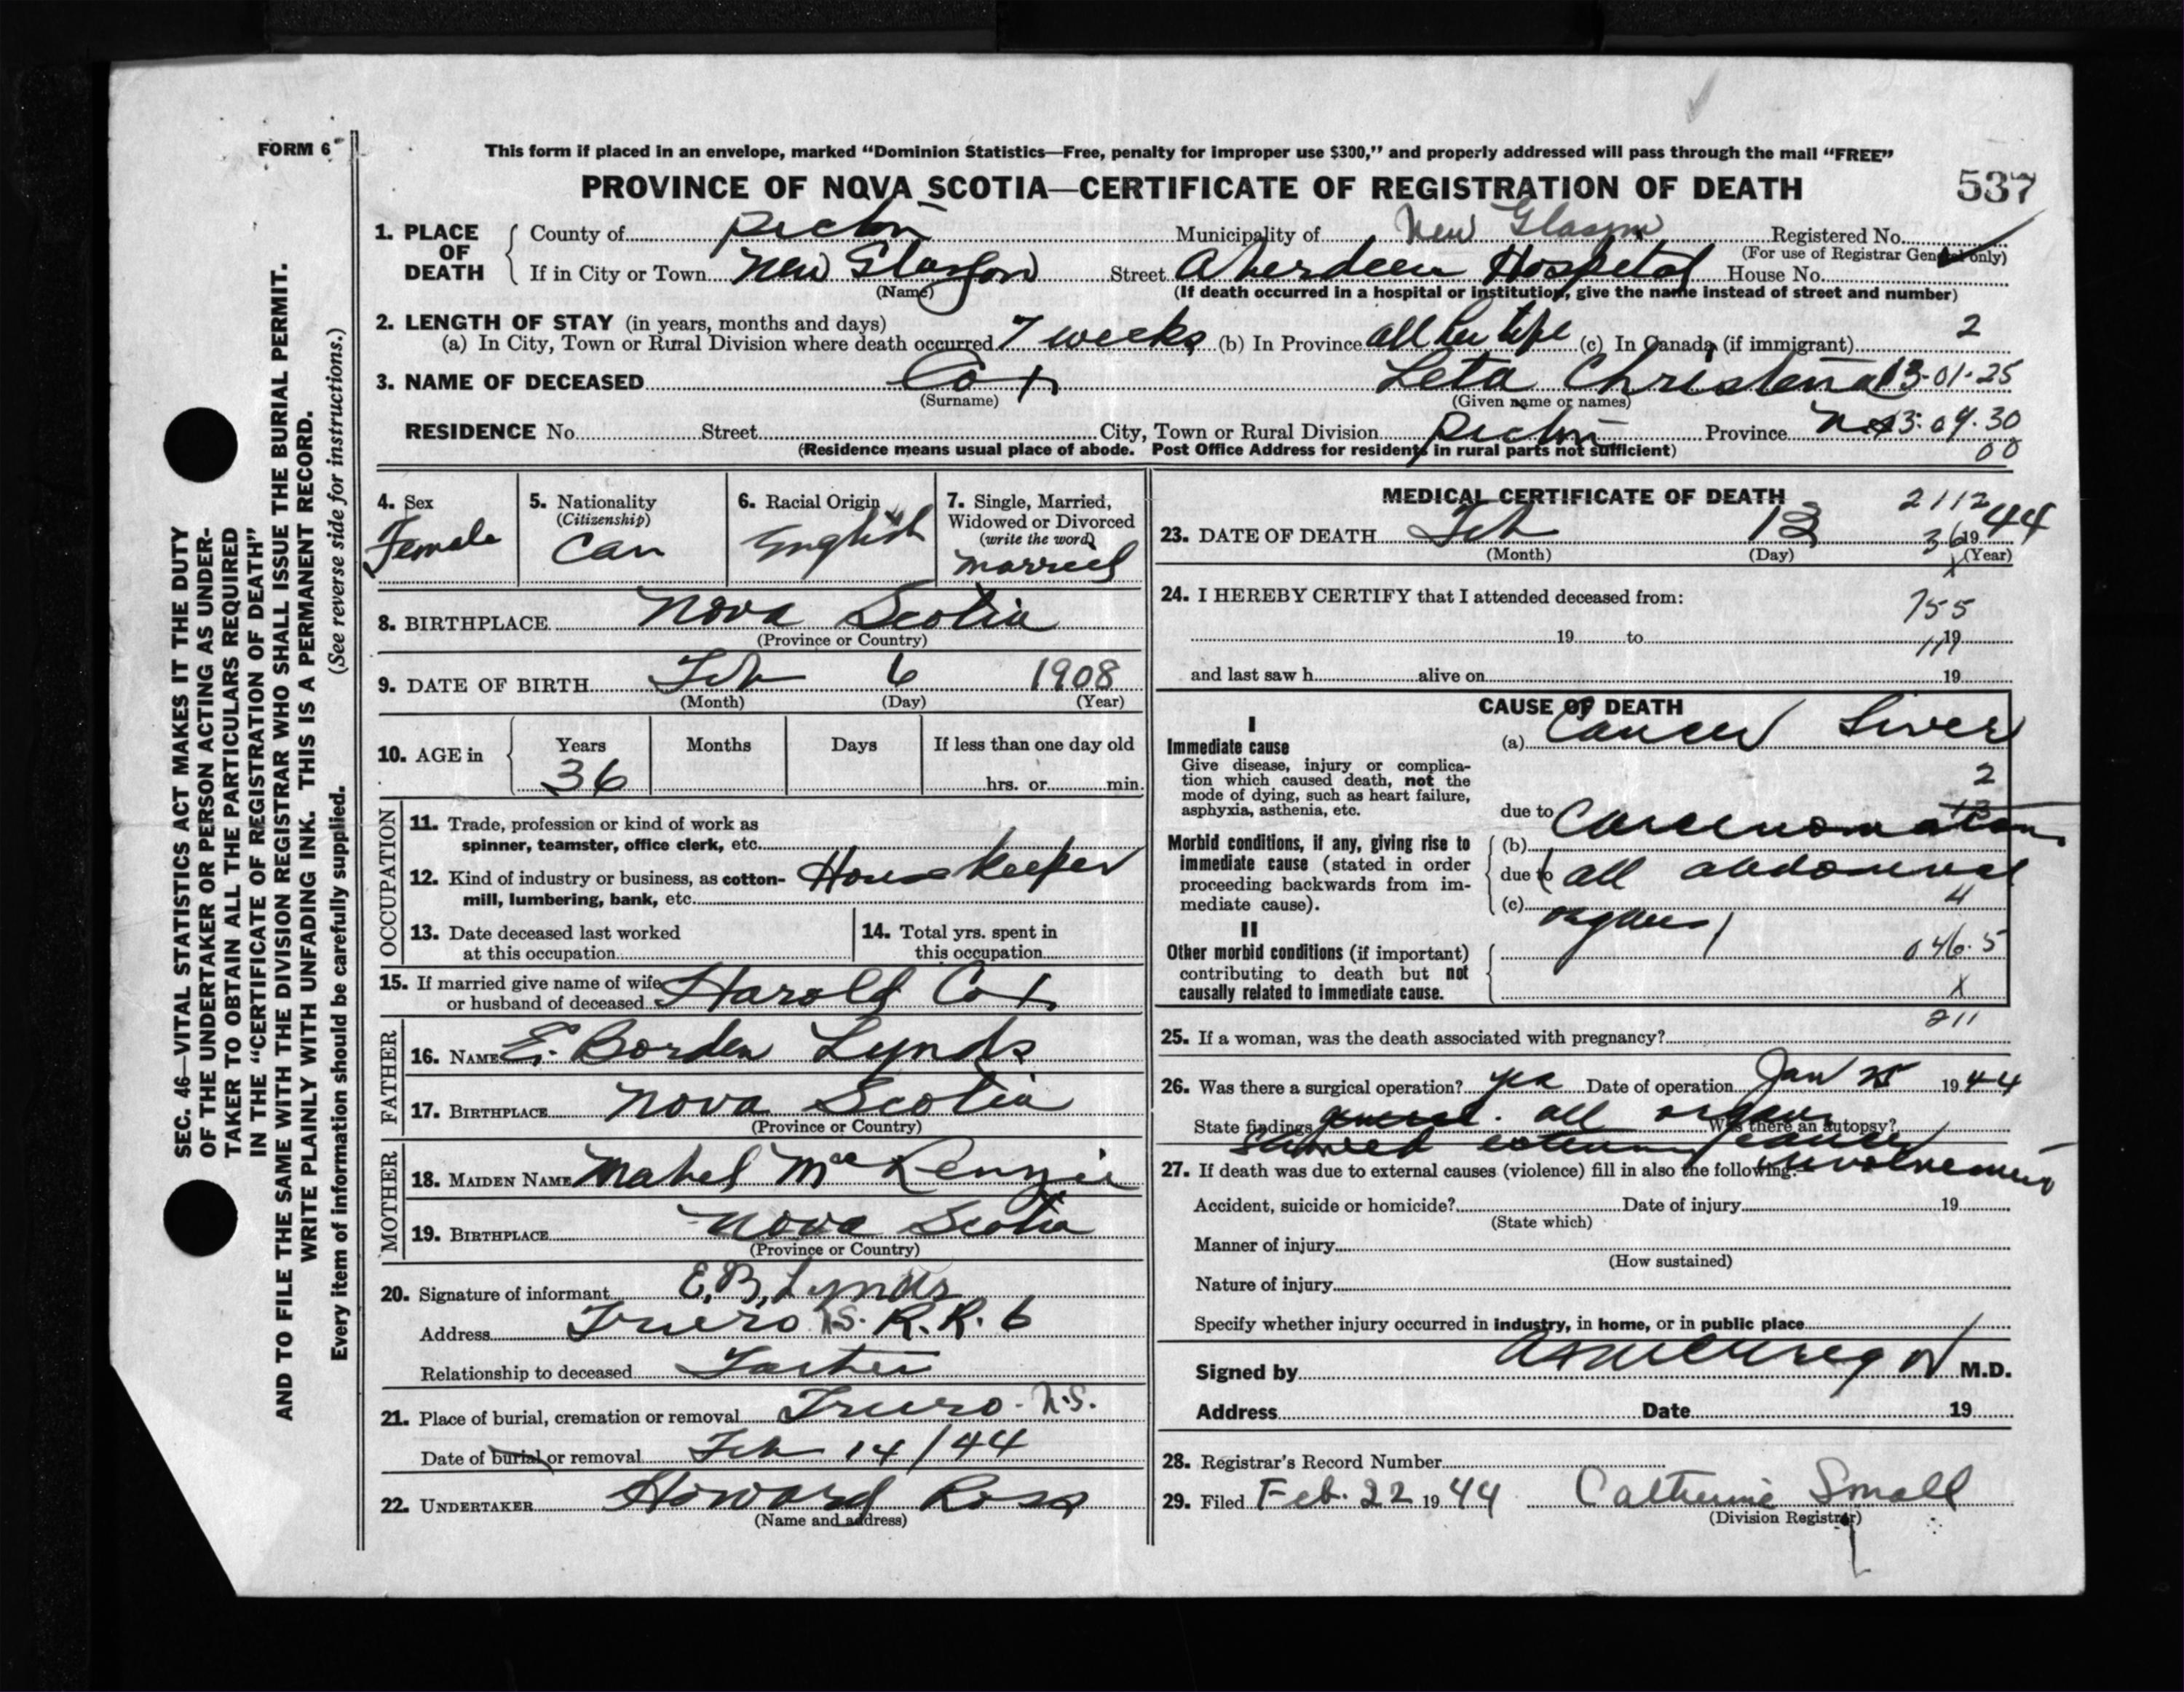 FORM 6
This form if placed in an envelope, marked “Dominion Statistics—Free, penalty for improper use $300,” and properly addressed will pass through the mail “FREE”
PROVINCE OF NOVA SCOTIA—CERTIFICATE OF REGISTRATION OF DEATH
537
1. PLACE OF DEATH
County of Pictou Municipality of New Glasgow Registered No.
(For use of Registrar General only)
If in City or Town New Glasgow Street Aberdeen Hospital House No.
(Name)
(If death occurred in a hospital or institution, give the name instead of street and number)
2. LENGTH OF STAY (in years, months and days)
(a) In City, Town or Rural Division where death occurred 7 weeks (b) In Province all her life (c) In Canada (if immigrant) 2
3. NAME OF DECEASED Cox Leta Christena 13-01-25
(Surname) (Given name or names)
RESIDENCE No. Street City, Town or Rural Division Pictou Province N.S. 13.09.30
(Residence means usual place of abode. Post Office Address for residents in rural parts not sufficient) 00
4. Sex Female
5. Nationality (Citizenship) Can
6. Racial Origin English
7. Single, Married, Widowed or Divorced (write the word) married
8. BIRTHPLACE Nova Scotia
(Province or Country)
9. DATE OF BIRTH Feb 6 1908
(Month) (Day) (Year)
10. AGE in Years Months Days If less than one day old
36 hrs. or min.
OCCUPATION
11. Trade, profession or kind of work as
spinner, teamster, office clerk, etc.
12. Kind of industry or business, as cotton-
mill, lumbering, bank, etc. Housekeeper
13. Date deceased last worked
at this occupation
14. Total yrs. spent in
this occupation
15. If married give name of wife
or husband of deceased Harold Cox
FATHER
16. NAME E. Borden Lynds
17. BIRTHPLACE Nova Scotia
(Province or Country)
MOTHER
18. MAIDEN NAME Mabel MacKenzie
19. BIRTHPLACE Nova Scotia
(Province or Country)
20. Signature of informant E.B. Lynds
Address Truro N.S. R.R. 6
Relationship to deceased Father
21. Place of burial, cremation or removal Truro. N.S.
Date of burial or removal Feb 14/44
22. UNDERTAKER Howard Ross
(Name and address)
MEDICAL CERTIFICATE OF DEATH
2112
23. DATE OF DEATH Feb 13 1944
(Month) (Day) (Year)
36
X
24. I HEREBY CERTIFY that I attended deceased from:
755
19 to 19
and last saw h alive on 19
CAUSE OF DEATH
I
Immediate cause
Give disease, injury or complica-
tion which caused death, not the
mode of dying, such as heart failure,
asphyxia, asthenia, etc.
(a) Cancer Liver
2
due to
Morbid conditions, if any, giving rise to
immediate cause (stated in order
proceeding backwards from im-
mediate cause).
(b)
due to all abdominal
4
(c) organs
II
Other morbid conditions (if important)
contributing to death but not
causally related to immediate cause.
046.5
X
211
25. If a woman, was the death associated with pregnancy?
26. Was there a surgical operation? yes Date of operation Jan 25 1944
State findings general. all organs Was there an autopsy?
showed cancer
27. If death was due to external causes (violence) fill in also the following: involvement
Accident, suicide or homicide? Date of injury 19
(State which)
Manner of injury
(How sustained)
Nature of injury
Specify whether injury occurred in industry, in home, or in public place
Signed by M.D.
Address Date 19
28. Registrar's Record Number
29. Filed Feb. 22 1944 Catherine Small
(Division Registrar)
SEC. 46—VITAL STATISTICS ACT MAKES IT THE DUTY
OF THE UNDERTAKER OR PERSON ACTING AS UNDER-
TAKER TO OBTAIN ALL THE PARTICULARS REQUIRED
IN THE “CERTIFICATE OF REGISTRATION OF DEATH”
AND TO FILE THE SAME WITH THE DIVISION REGISTRAR WHO SHALL ISSUE THE BURIAL PERMIT.
WRITE PLAINLY WITH UNFADING INK. THIS IS A PERMANENT RECORD.
Every item of information should be carefully supplied. (See reverse side for instructions.)